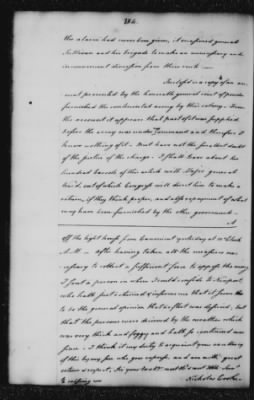 184.
the alarm had never been given, it occasioned general
Sullivan and his brigade to make an unnecessary and
inconvenient diversion from their rout —
Inclosed is a copy of an account
presented by the honorable general court of powder
furnished the continental army by this colony. From
the account it appears that part of it was supplied
before the army was under command and therefore I
know nothing of it. But have not the smallest doubt
of the justice of the charge. I shall leave about two
hundred barrels of this article with Major general
Ward, out of which Congress will direct him to make a
return, if they think proper, and also repayment of what
may have been furnished by the other governments —
Off the light house from Eastward yesterday at 10 Clock
A.M. — after having taken all the measures necessary
to collect a sufficient force to oppose the enemy
I sent a person in whom I could confide to Newport,
who hath just returned & informs me that it seems now
to be the general opinion that no fleet was discovered, but
that the persons were deceived by the weather which
was very thick and foggy and hath so continued ever
since. — I think it my duty to acquaint your excellency
of this by express who you and am with great
esteem & respect, Sir your
Nicholas Cooke.